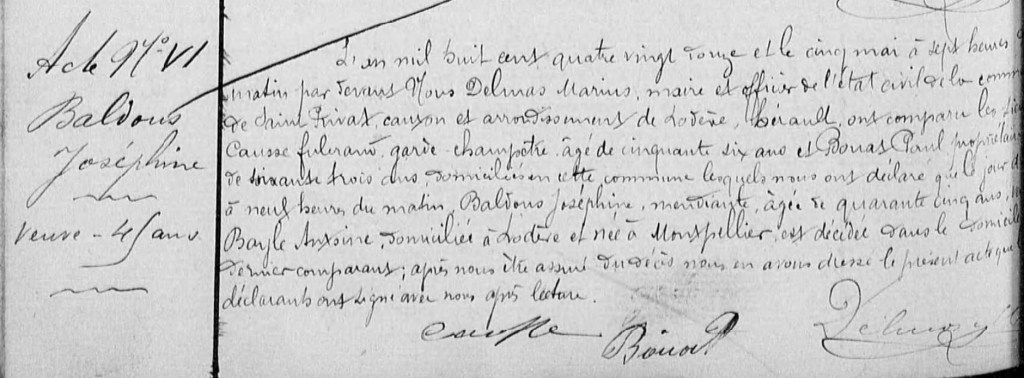 Acte N° VI
Baldous
Joséphine
Veuve - 45 ans
L'an mil huit cent quatre vingt douze et le cinq mai à sept heures
matin par devant Nous Delmas Marius, maire et officier de l'état civil de la comm
de Saint Privat, canton et arrondissement de Lodève, hérault, ont comparu les
Causse fulcrand, garde-champêtre, âgé de cinquante six ans et Bonas Paul propriétaire
de soixante trois ans, domiciliés en cette commune lesquels nous ont déclaré que le jour d
à neuf heures du matin, Baldous Joséphine, mendiante, âgée de quarante cinq ans,
Bayle Antoine, domiciliée à Lodève et née à Montpellier, est décédée dans le domicile
dernier comparant; après nous être assuré du décès nous en avons dressé le présent acte que
déclarants ont signé avec nous après lecture.
Causse
Bonas P
Delmas